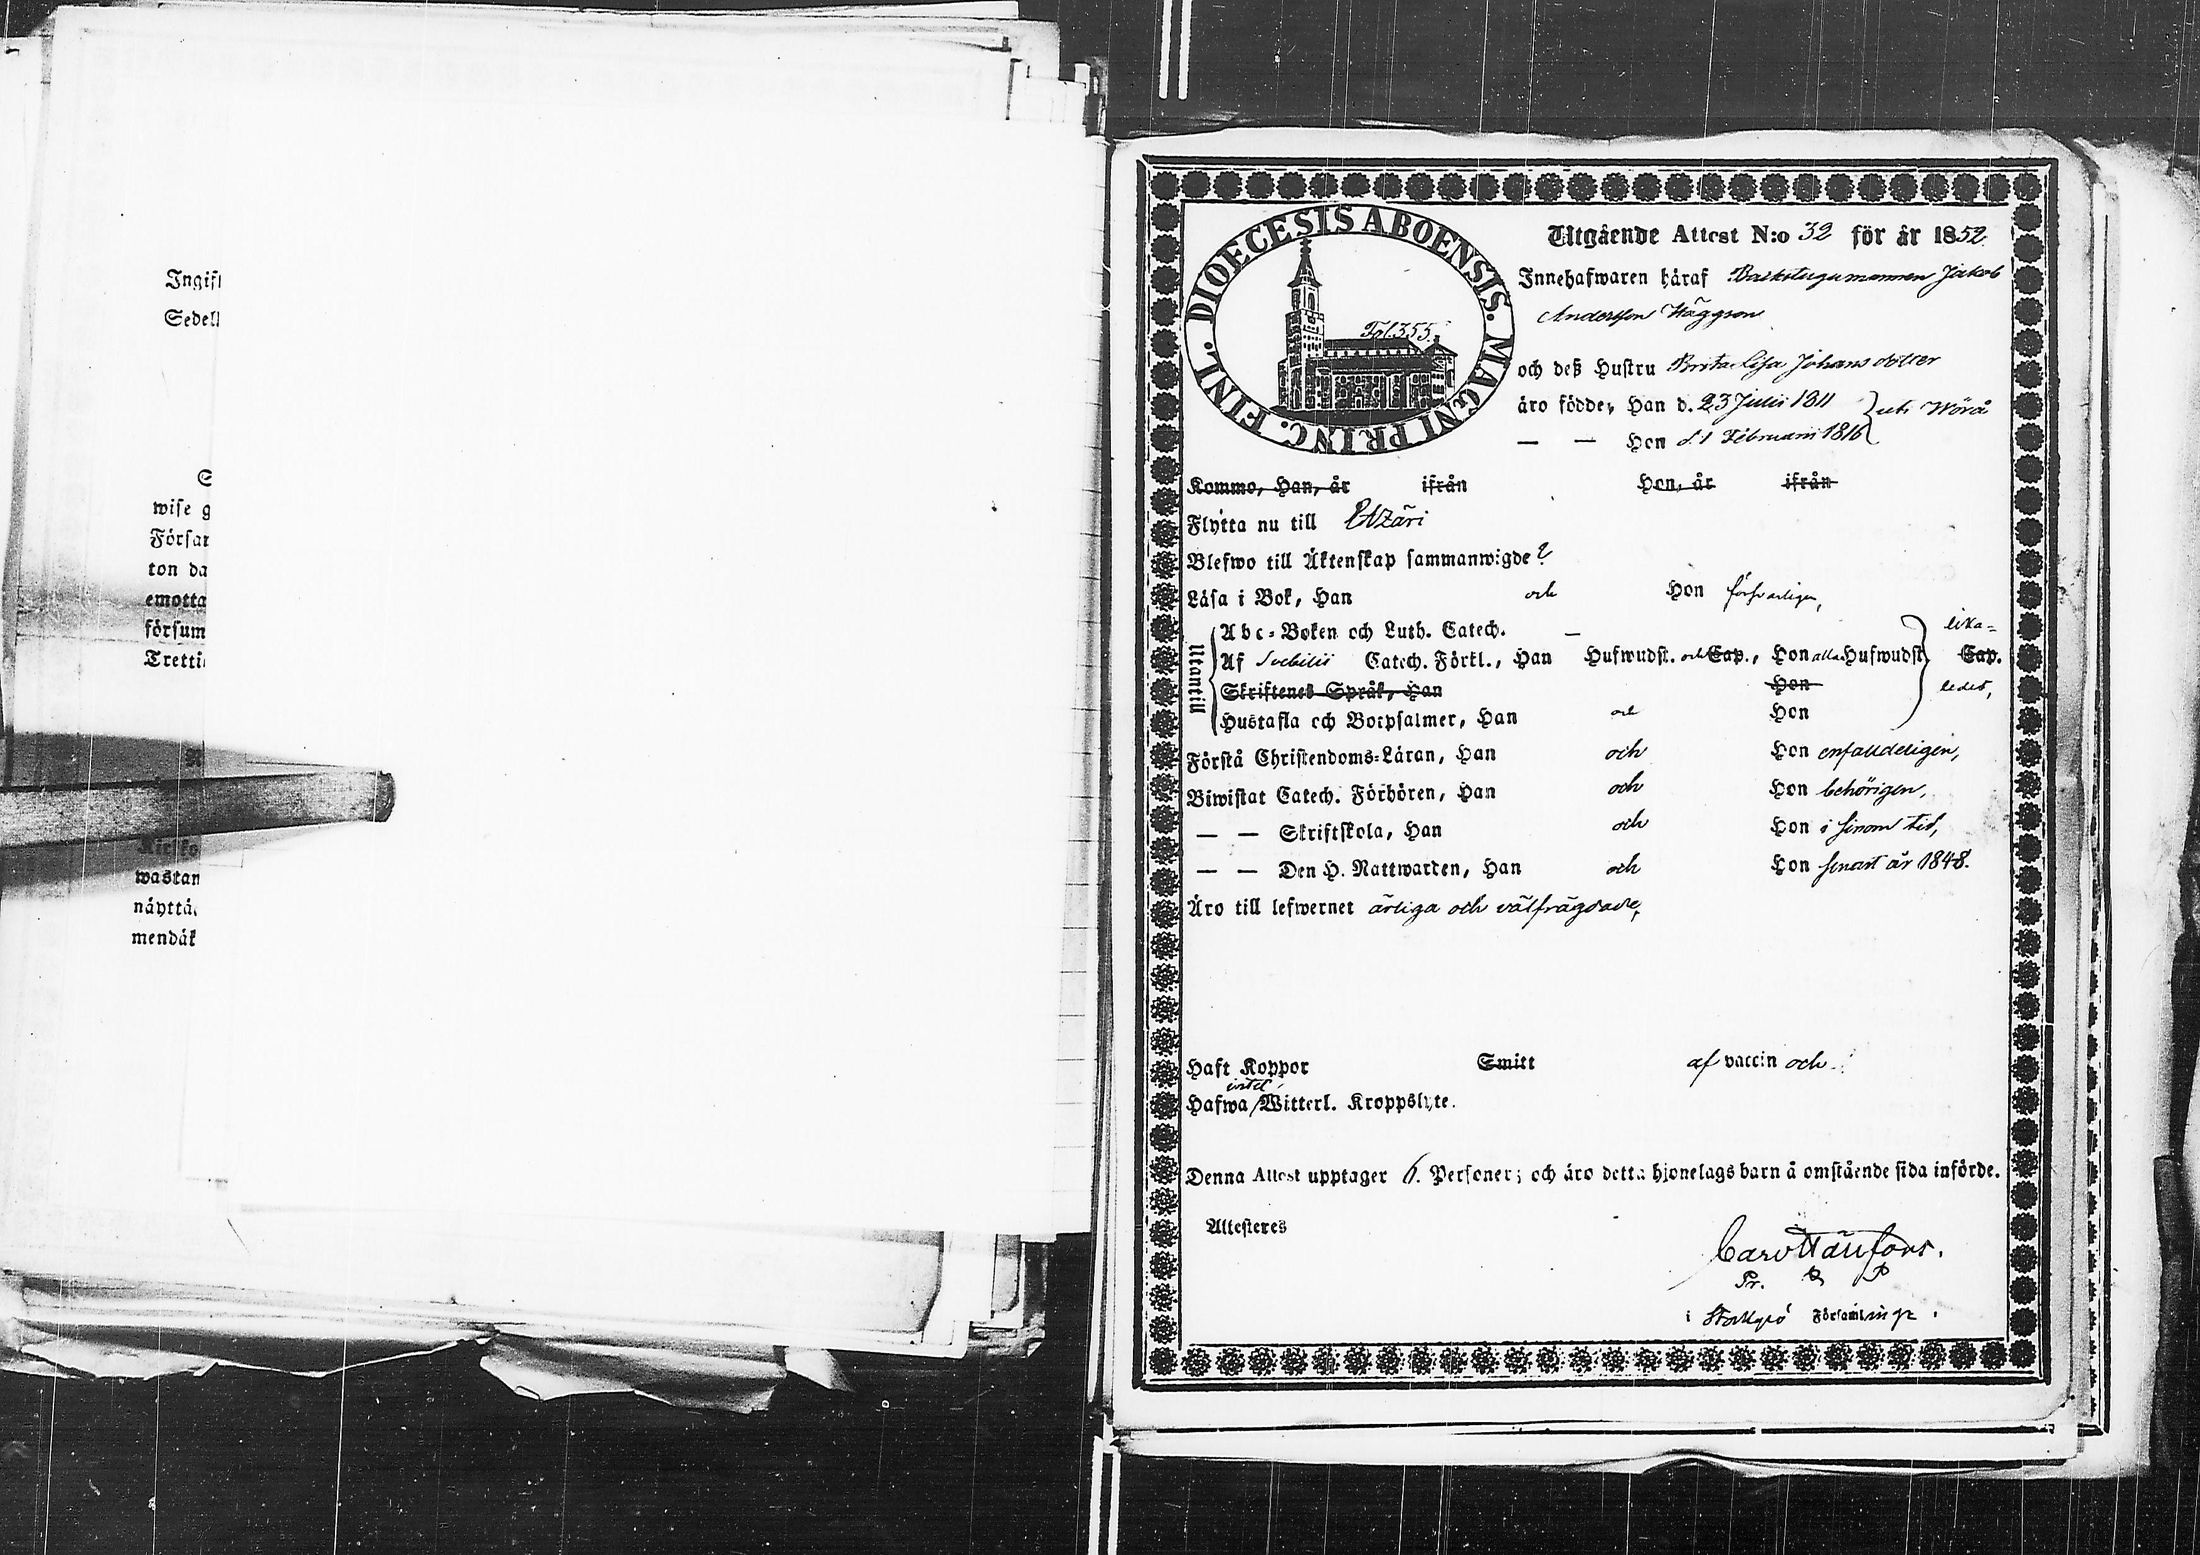 Ingift
Sedell
S
wise g
Försam
ton da
emotta
försum
Tretti
Kirko
wastan
näyttä,
mendäk
DIOECESIS ABOENSIS. MAGNI PRINC. FINL.
Fol. 355.
Utgående Attest N:o 32 för år 1852.
Innehafwaren häraf Backstugumannen Jakob
Andersson Häggson
och deß Hustru Brita Lisa Johansdotter
äro födde, Han d. 23 Julii 1811 } uti Wörå
— — Hon d. 1 Februarii 1816
Kommo, Han, år ifrån Hon, år ifrån
Flytta nu till
Blefwo till Äktenskap sammanwigde ?
Läsa i Bok, Han och Hon försvarligen,
Utantill
Abc-Boken och Luth. Catech. — lika-
Af Svebilii Catech. Förkl., Han Hufwudst. och Cap., Hon alla Hufwudst. Cap.
Skriftenes Språk, Han Hon ledes,
Hustafla och Botpsalmer, Han och Hon
Förstå Christendoms-Läran, Han och Hon enfaldeligen,
Biwistat Catech. Förhören, Han och Hon behörigen,
— — Skriftskola, Han och Hon i sinom tid,
— — Den H. Nattwarden, Han och Hon senast år 1848.
Äro till lefwernet ärliga och välfrägdade,
Haft Koppor Smitt af vaccin och
intet
Hafwa Witterl. Kroppslyte.
Denna Attest upptager 6. Personer; och äro detta hjonelags barn å omstående sida införde.
Attesteres
Pr.
i Storkyrö Församlinge.